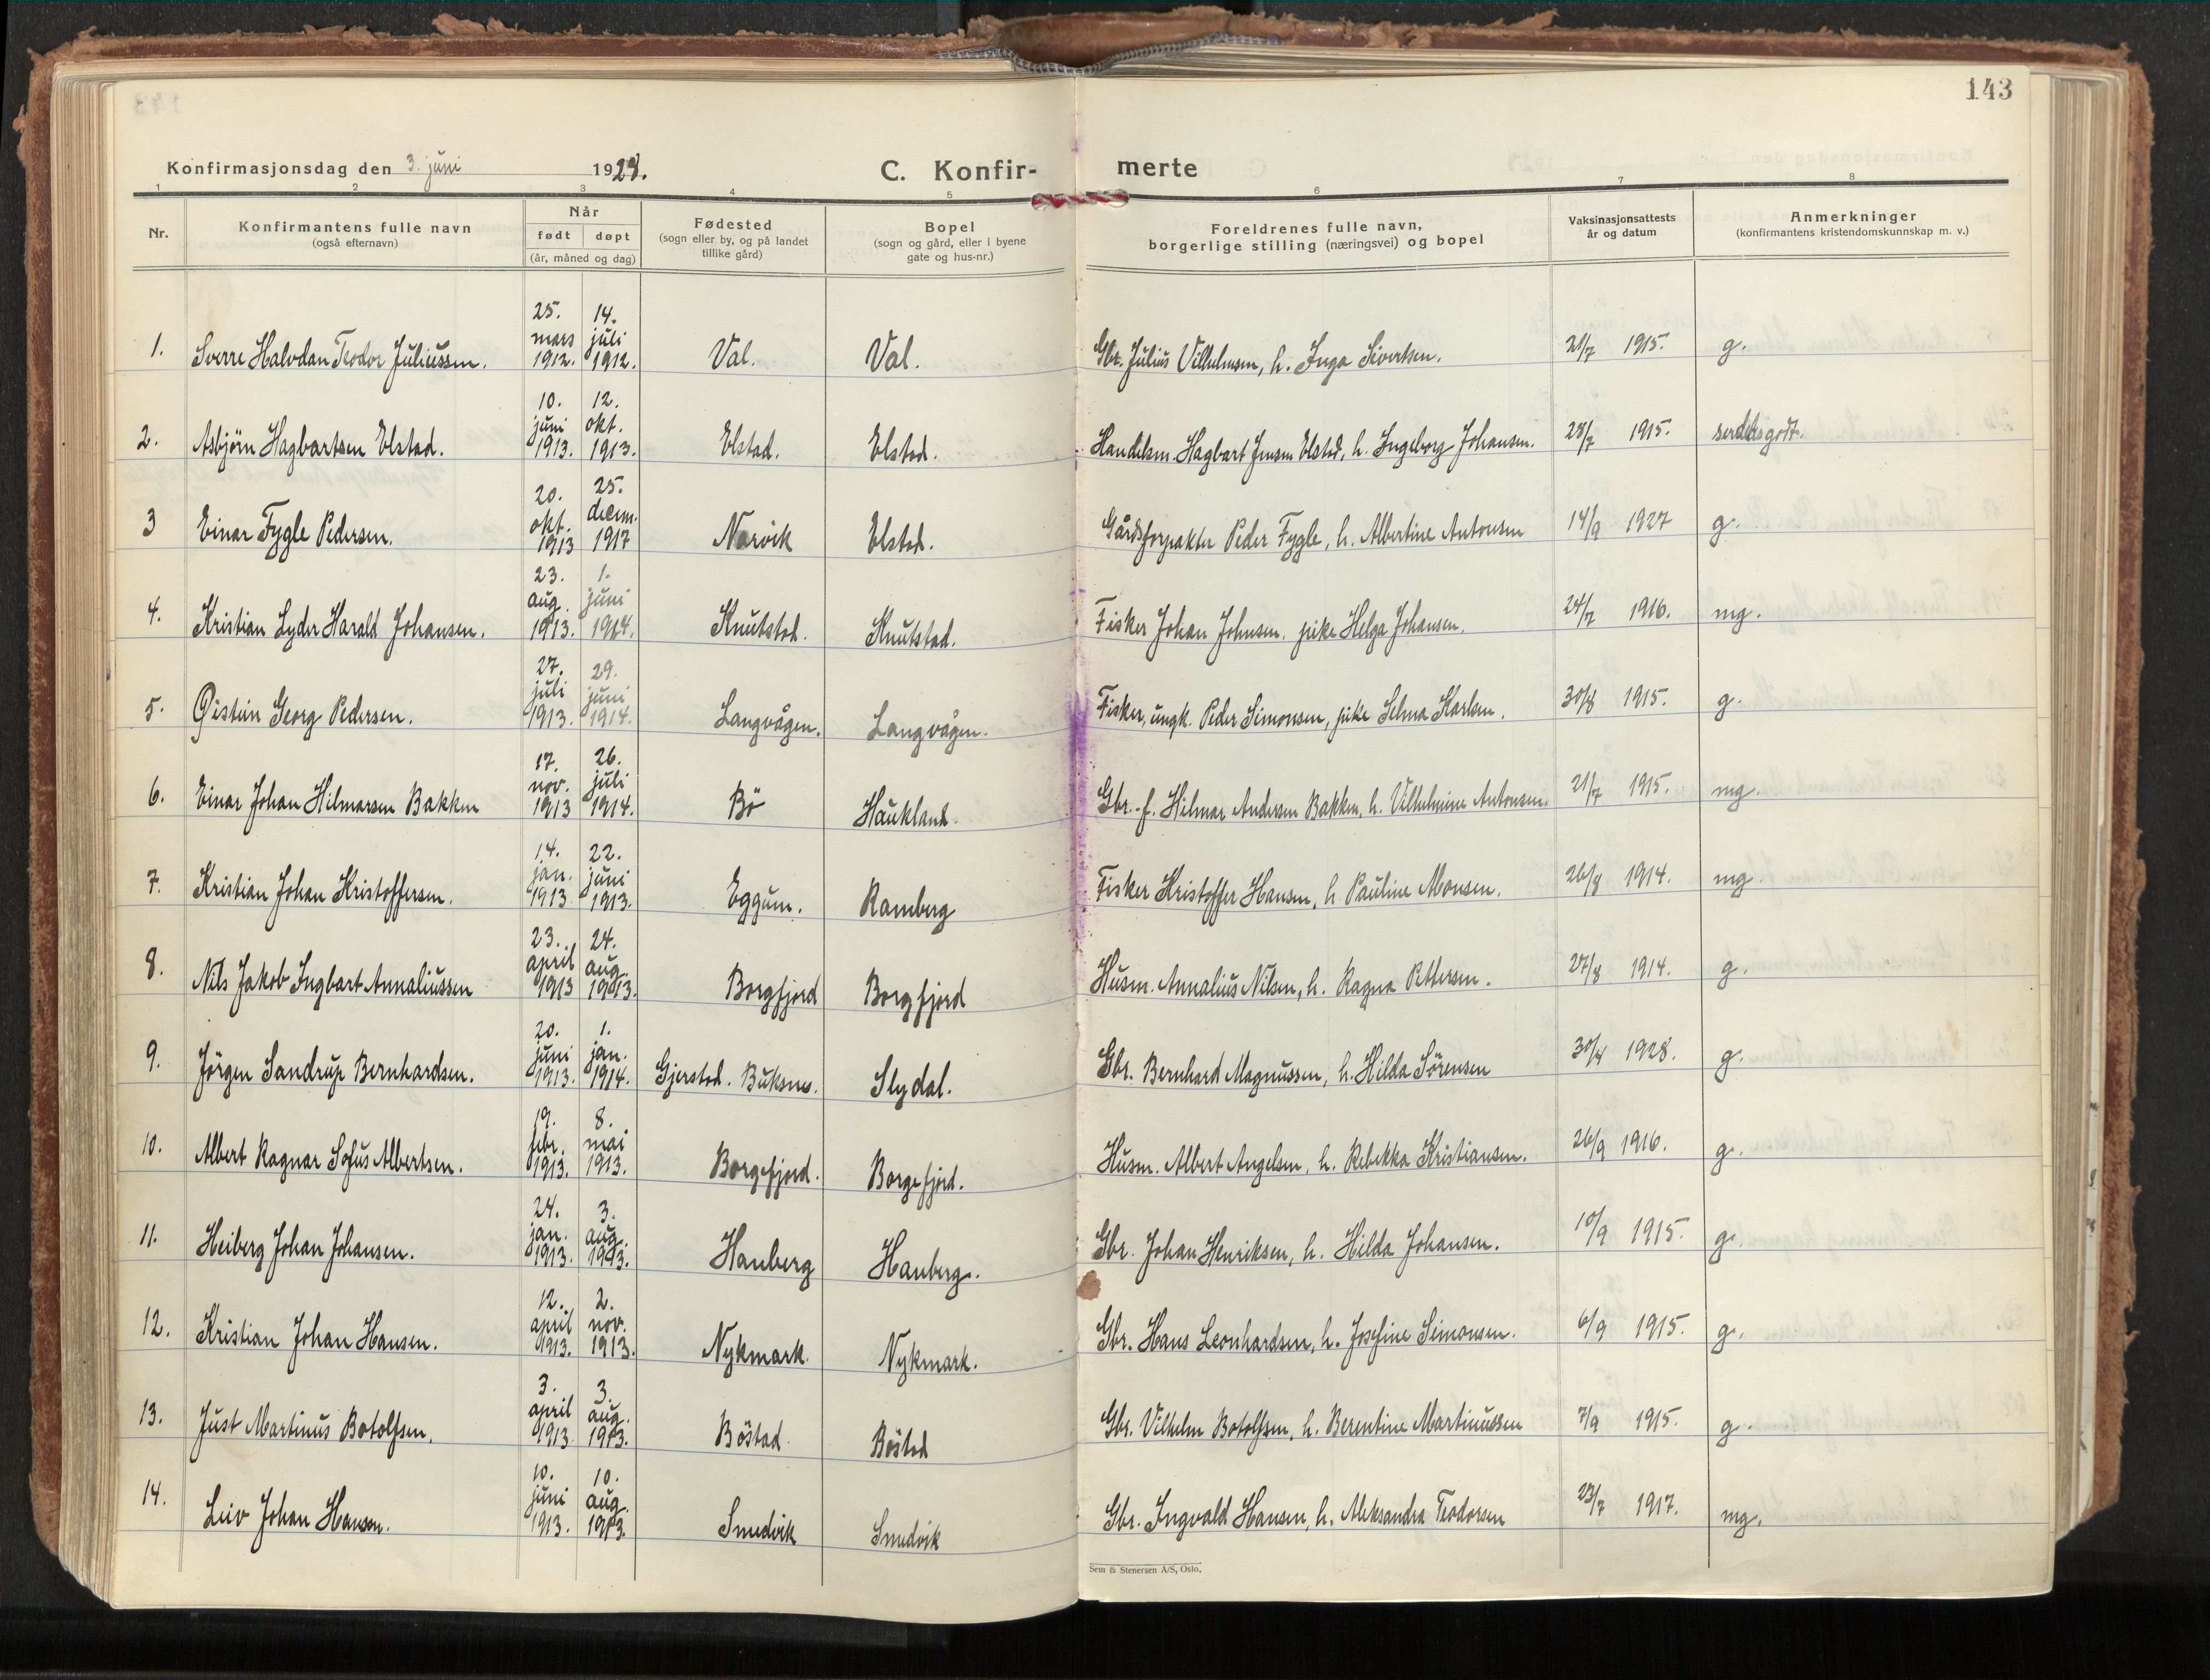 143
Konfirmasjonsdag den 3. juni 1928. C. Konfirmerte
1 2 3 4 5 6 7 8
Nr. Konfirmantens fulle navn (også efternavn) Når født døpt (år, måned og dag) Fødested (sogn eller by, og på landet tillike gård) Bopel (sogn og gård, eller i byene gate og hus-nr.) Foreldrenes fulle navn, borgerlige stilling (næringsvei) og bopel Vaksinasjonsattests år og datum Anmerkninger (konfirmantens kristendomskunnskap m. v.)
1. Sverre Halvdan Teodor Juliussen. 25. mars 1912. 14. juli 1912. Val. Val. Gbr. Julius Vilhelmsen, h. Inga Sivertsen. 21/7 1915. g.
2. Asbjörn Hagbartsen Elstad. 10. juni 1913. 12. okt. 1913. Elstad. Elstad. Handelsm. Hagbart Jensen Elstad, h. Ingeborg Johansen. 28/7 1915. serdelesgodt.
3 Einar Fygle Pedersen. 20. okt. 1913 25. decem. 1917 Narvik Elstad. Gårdsforpakter Peder Fygle, h. Albertine Antonsen 14/9 1927 g.
4. Kristian Lyder Harald Johansen. 23. aug. 1913. 1. juni 1914. Knutstad. Knutstad. Fisker Johan Johnsen, pike Helga Johansen. 24/7 1916. mg.
5. Øistein Georg Pedersen. 27. juli 1913. 29. juni 1914. Langvågen. Langvågen. Fisker, ungk. Peder Simonsen, pike Selma Karlsen. 30/8 1915. g.
6. Einar Johan Hilmarsen Bakken 17. nov. 1913 26. juli 1914. Bö Haukland. Gbr.-f. Hilmar Andersen Bakken, h. Vilhelmine Antonsen. 21/7 1915. mg.
7. Kristian Johan Kristoffersen. 14. jan. 1913 22. juni 1913. Eggum. Ramberg Fisker Kristoffer Hansen, h. Pauline Monsen. 26/8 1914. mg.
8. Nils Jakob Ingbart Annaliussen 23. april 1913 24. aug. 1913. Borgfjord Borgfjord Husm. Annalius Nilsen, h. Ragna Pettersen. 27/8 1914. g.
9. Jörgen Sandrup Bernhardsen. 20. juni 1913. 1. jan. 1914. Gjerstad. Buksnes. Slydal. Gbr. Bernhard Magnussen, h. Hilda Sörensen 30/4 1928. g.
10. Albert Ragnar Sofus Albertsen. 19. febr. 1913. 8. mai 1913. Borgefjord. Borgefjord. Husm. Albert Angelsen, h. Rebekka Kristiansen. 26/9 1916. g.
11. Heiberg Johan Johansen. 24. jan. 1913. 3. aug. 1913. Hanberg Hanberg. Gbr. Johan Henriksen, h. Hilda Johansen. 10/9 1915. g.
12. Kristian Johan Hansen. 12. april 1913. 2. nov. 1913. Nykmark. Nykmark. Gbr. Hans Leonhardsen, h. Josefine Simonsen. 6/9 1915. g.
13. Just Martinus Botolfsen. 3. april 1913. 3. aug. 1913. Böstad. Böstad Gbr. Vilhelm Botolfsen, h. Berentine Martinussen 7/9 1915. g.
14. Leiv Johan Hansen. 10. juni 1913. 10. aug. 1913. Smedvik Smedvik Gbr. Ingvald Hansen, h. Aleksandra Teodorsen 23/7 1917. mg.
Sem & Stenersen A/S, Oslo.